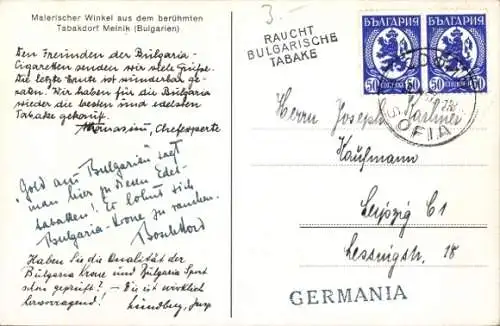 Malerischer Winkel aus dem berühmten
Tabakdorf Melnik (Bulgarien)
Den Freunden der Bulgaria-
Cigaretten senden wir viele Grüße.
Die letzte Ernte ist wunderbar ge-
raten! Wir haben für die Bulgaria
wieder die besten und edelsten
Tabake gekauft.
Chefexperte
"Gold aus Bulgarien" sagt
man hier zu diesen Edel-
tabaken! Es lohnt sich
Bulgaria-Krone zu rauchen.
Haben Sie die Qualität der
Bulgaria Krone und Bulgaria Sport
schon geprüft? - Sie ist wirklich
hervorragend!
3.-
RAUCHT
BULGARISCHE
TABAKE
БЪЛГАРИЯ
50 50
БЪЛГАРИЯ
50 50
SOFIA
Herrn Joseph Kastner
Kaufmann
Leipzig C1
Lessingstr. 18
GERMANIA